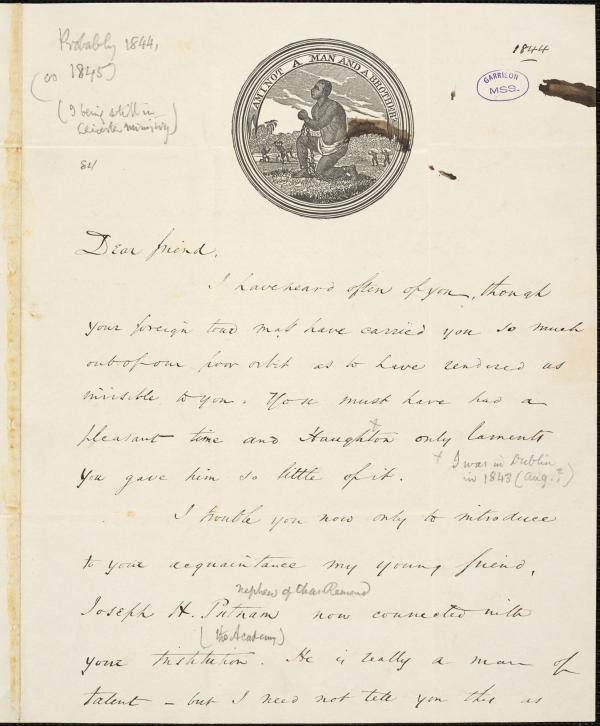 Probably 1844,
(or 1845)
(I being still in
Leicester ministry)
84
AM I NOT A MAN AND A BROTHER?
1844
GARRISON
MSS.
Dear friend,
I have heard often of you, though
your foreign tour must have carried you so much
out of our poor orbit as to have rendered us
invisible to you. You must have had a
pleasant time and Haughton only laments
you gave him so little of it.
+ I was in Dublin
in 1843 (Aug.?)
I trouble you now only to introduce
to your acquaintance my young friend,
nephew of Chas Remond
Joseph H. Putnam now connected with
(the Academy)
your Institution. He is really a man of
talent – but I need not tell you this as